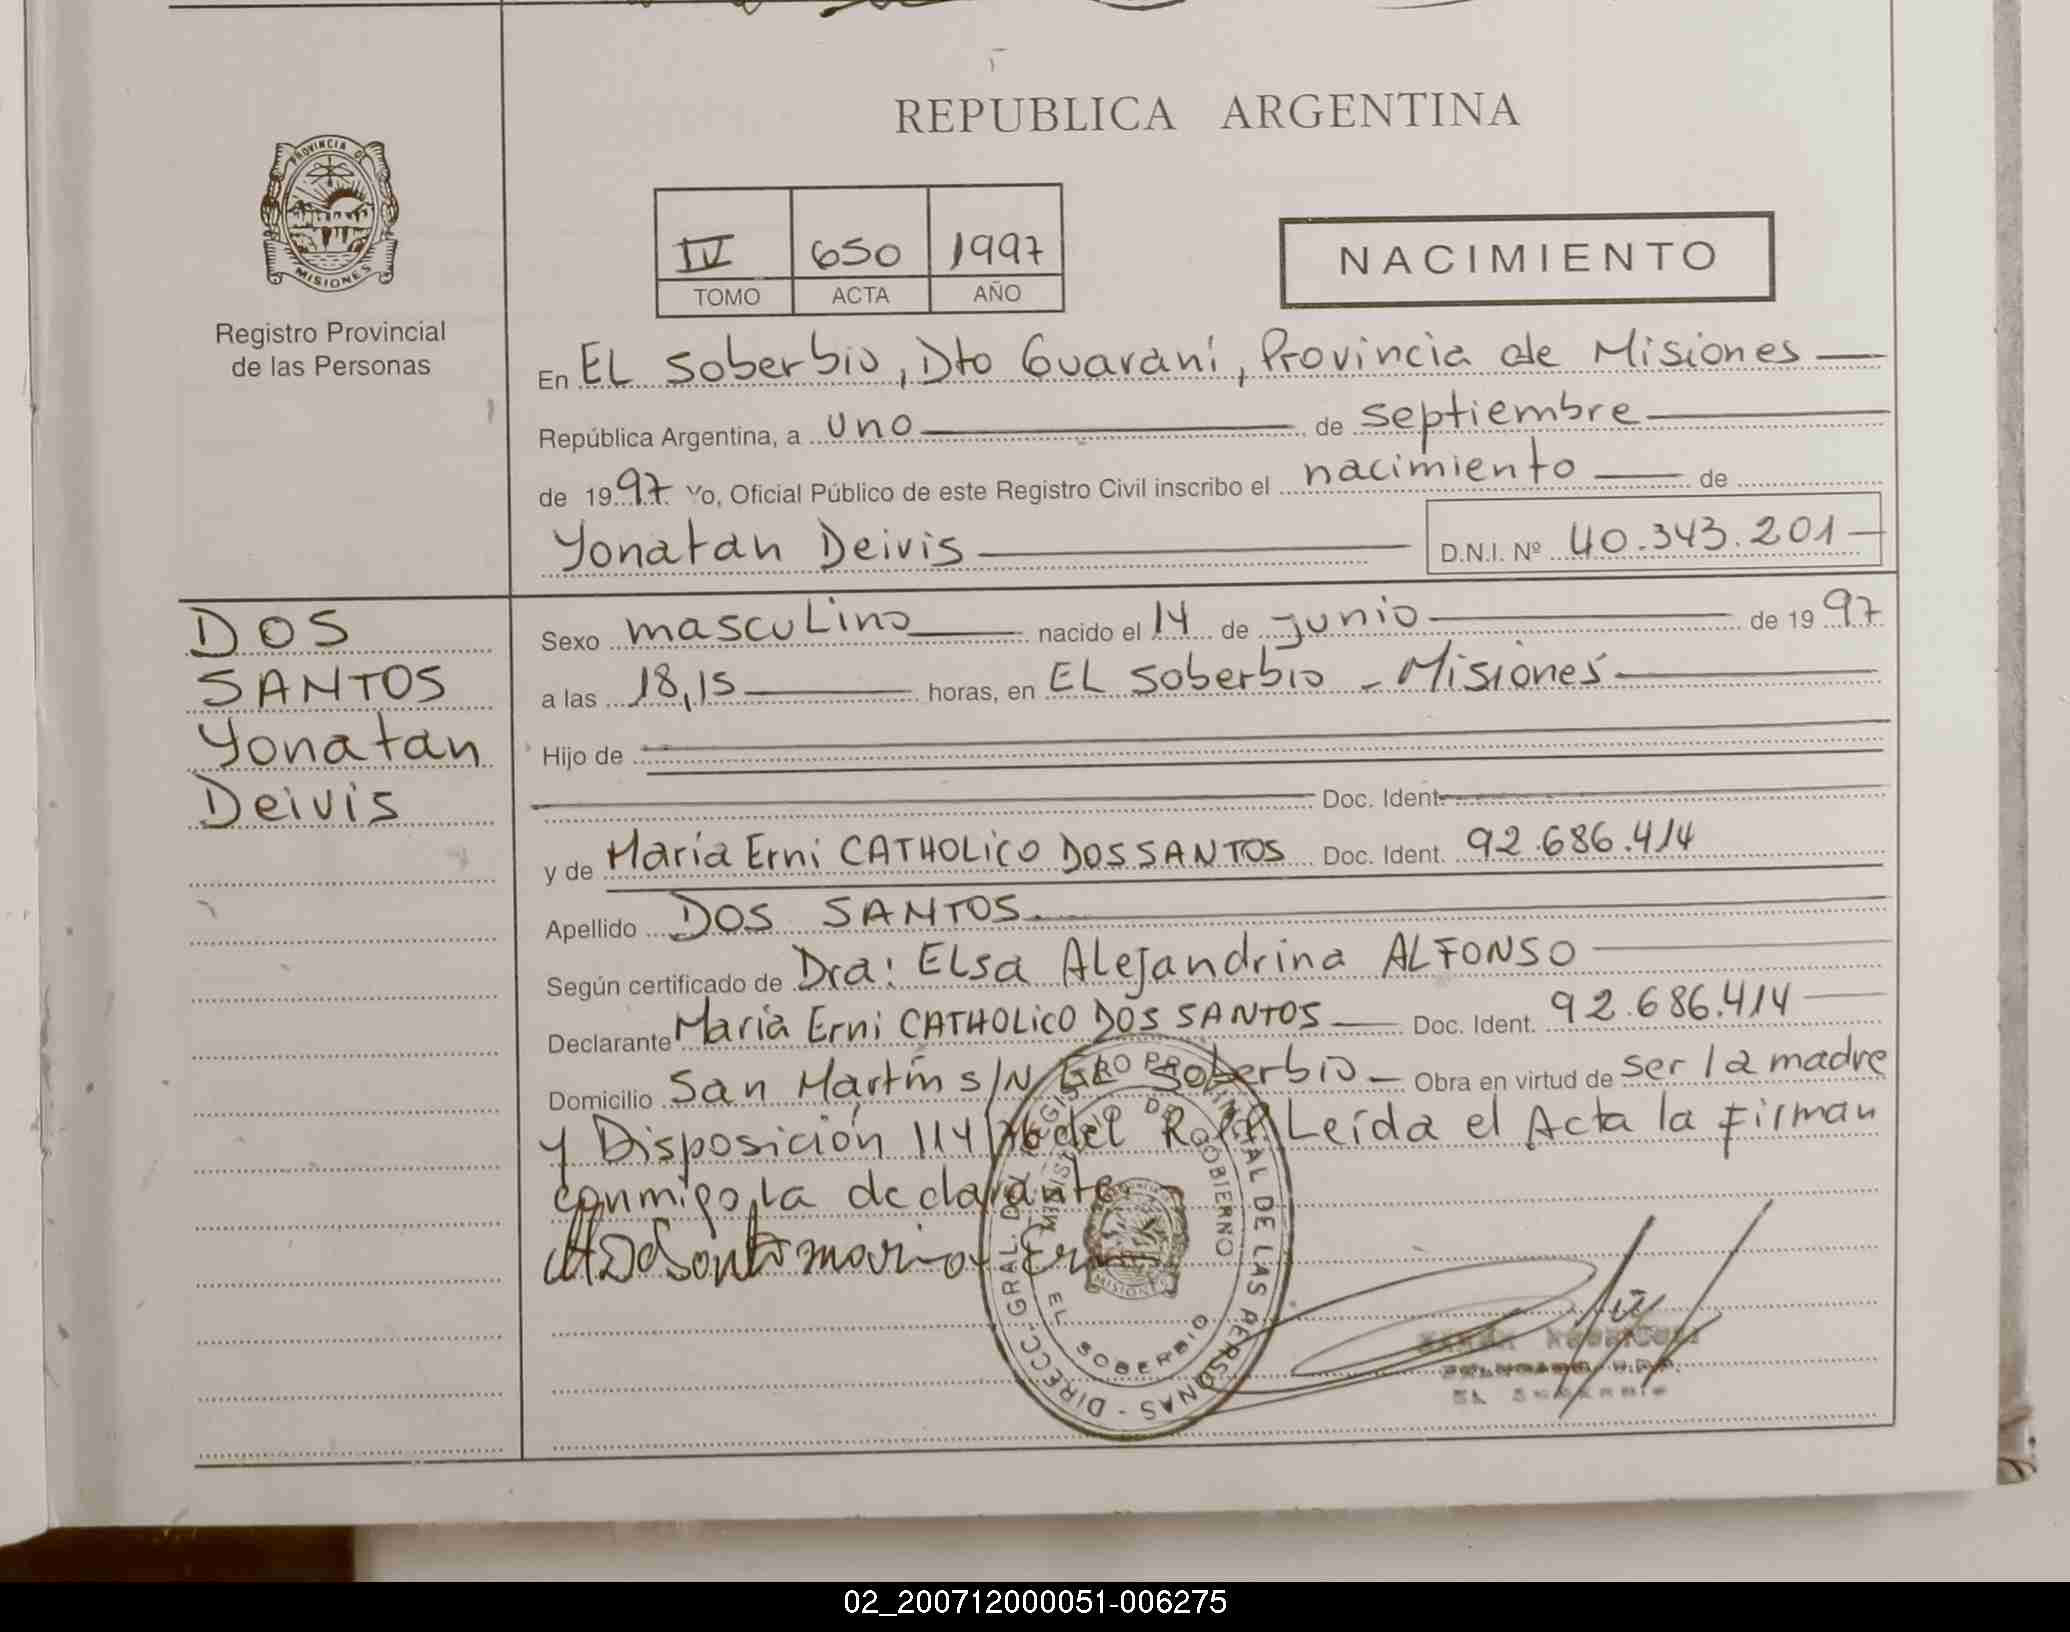 REPUBLICA ARGENTINA
PROVINCIA DE
MISIONES
Registro Provincial
de las Personas
IV 650 1997
TOMO ACTA AÑO
NACIMIENTO
En EL Soberbio, Dto Guaraní, Provincia de Misiones
República Argentina, a uno de septiembre
de 1997 Yo, Oficial Público de este Registro Civil inscribo el nacimiento de
Yonatan Deivis D.N.I. Nº 40.343.201
DOS
SANTOS
Yonatan
Deivis
Sexo mascuLino nacido el 14 de junio de 1997
a las 18,15 horas, en EL Soberbio - Misiones
Hijo de
Doc. Ident.
y de María Erni CATHOLiCO DOS SANTOS Doc. Ident. 92.686.414
Apellido DOS SANTOS
Según certificado de Dra: ELsa Alejandrina ALFONSO
Declarante María Erni CATHOLiCO DOS SANTOS Doc. Ident. 92.686.414
Domicilio San Martín s/N EL Soberbio Obra en virtud de ser la madre
y Disposición 114/76 del R.P.P. Leída el Acta la Firman
conmigo, la declarante
DIRECC. GRAL. DEL REGISTRO PROVINCIAL DE LAS PERSONAS
MINISTERIO DE GOBIERNO
MISIONES
EL SOBERBIO
EL SOBERBIO
02_200712000051-006275